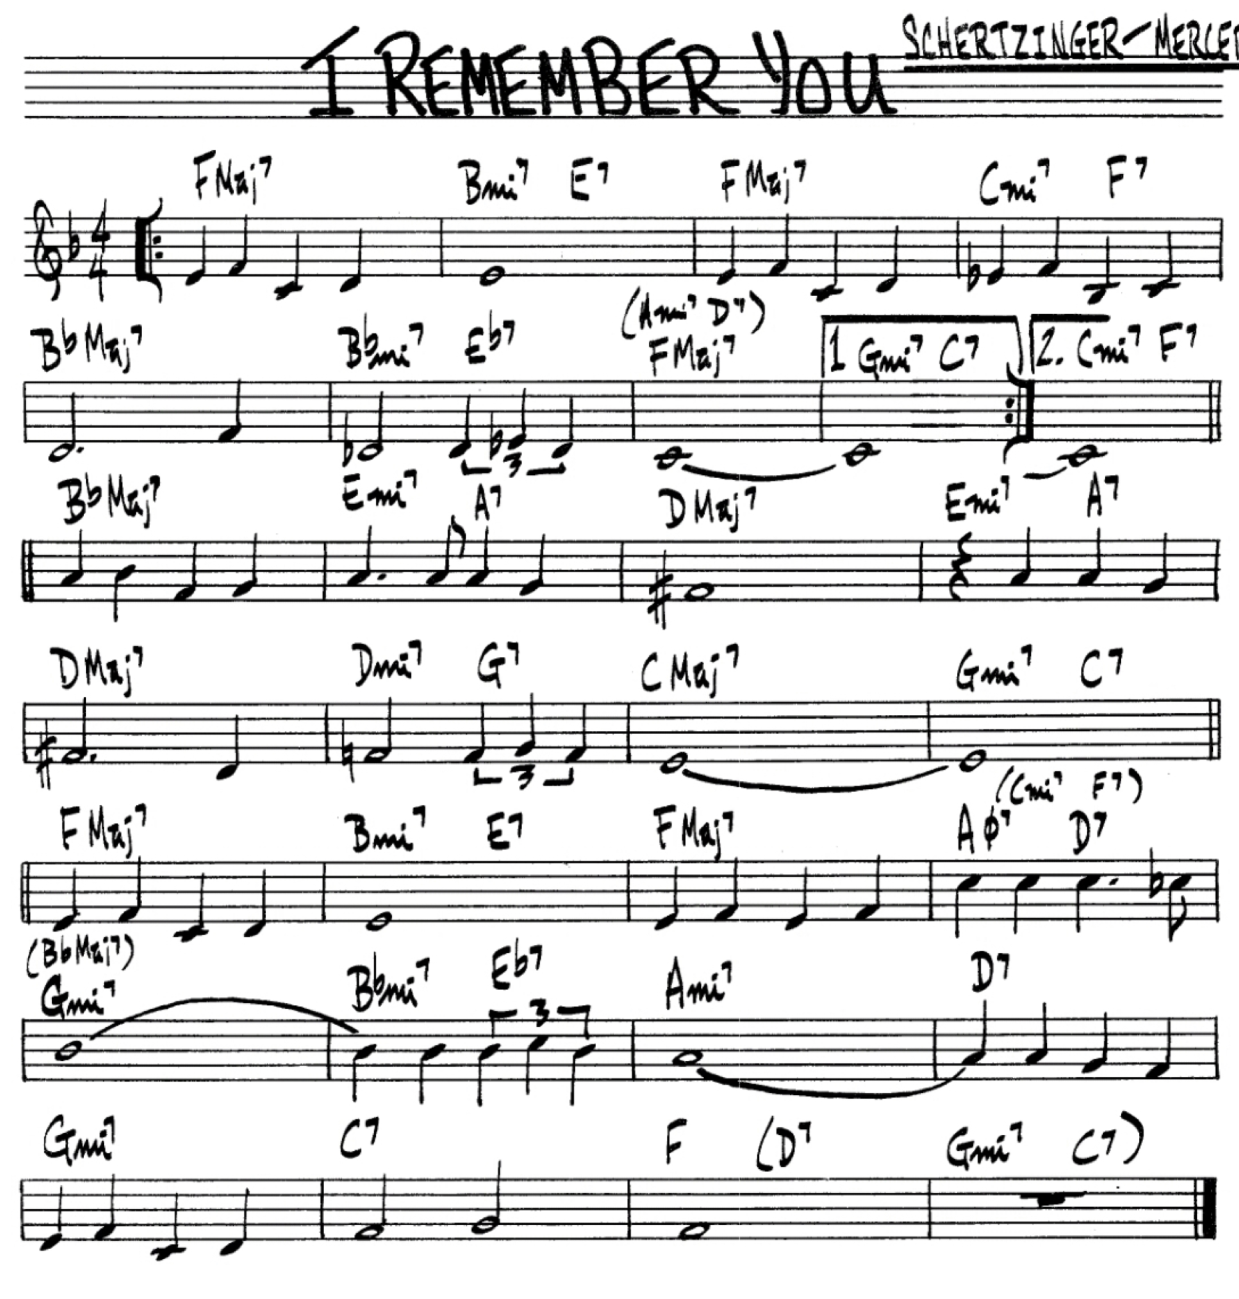 I REMEMBER YOU
SCHERTZINGER-MERCER
FMaj7 Bmi7 E7 FMaj7 Cmi7 F7
4
4
(Ami7 D7)
BbMaj7 Bbmi7 Eb7 FMaj7 1 Gmi7 C7 2. Cmi7 F7
3
BbMaj7 Emi7 A7 DMaj7 Emi7 A7
DMaj7 Dmi7 G7 CMaj7 Gmi7 C7
3
(Cmi7 F7)
FMaj7 Bmi7 E7 FMaj7 Aø7 D7
(BbMaj7)
Gmi7 Bbmi7 Eb7 Ami7 D7
3
Gmi7 C7 F (D7 Gmi7 C7)